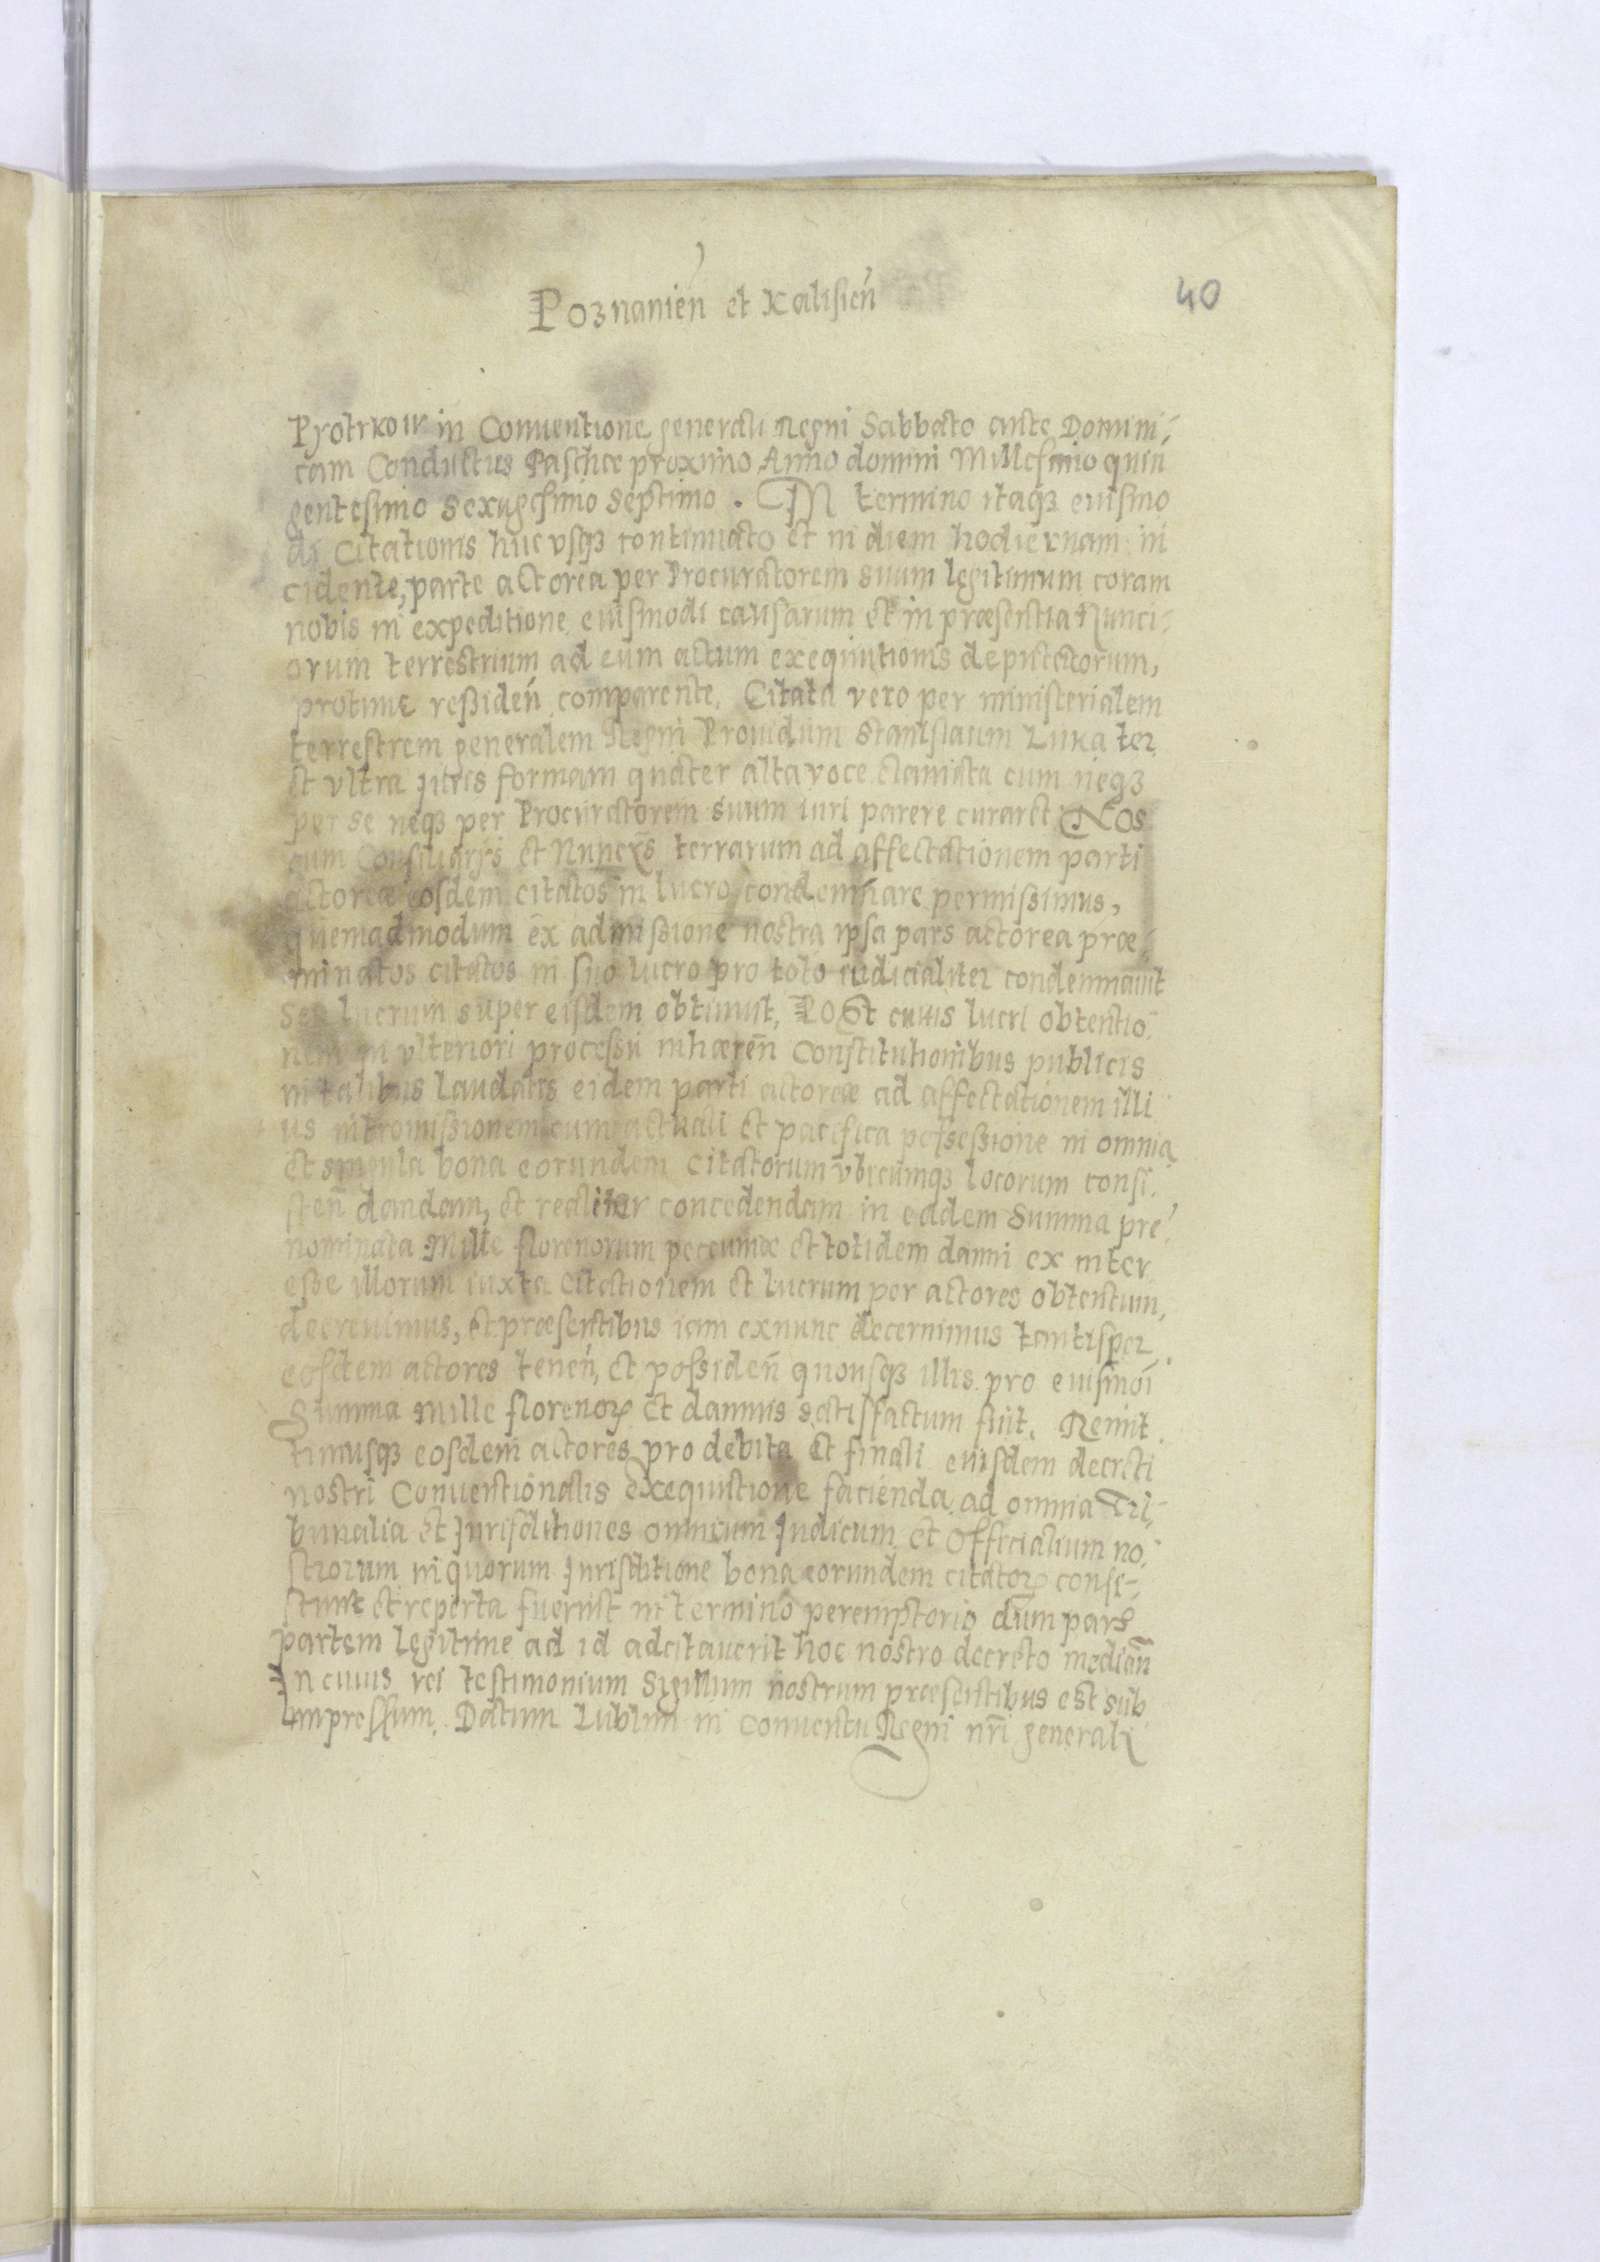 Poznanien̄ et Kalisien̄
40
Pyotrkow in Conuentione generali Regni Sabbato ante Domini,
cam Conductus Paschæ proximo Anno domini Millesimo quin
gentesimo sexagesimo septimo. IN termino itaqꝫ euismo
di Citationis huc vsqꝫ continuato et in diem hodiernam in
cidente, parte actorea per Procuratorem suum legitimum coram
nobis in expeditione euismodi causarum et in præsentia Nunci
orum terrestrium ad eum actum exequutionis deputatorum,
protunc reßiden̄ comparente, Citata vero per ministerialem
terrestrem generalem Regni Prouidum Stanislaum Luka ter
et vltra Iuris formam quater alta voce clamata cum neqꝫ
per se neqꝫ per Procuratorem suum iuri parere curaret NOS
cum Consiliarijs et Nuncijs terrarum ad affectationem parti
actoreæ eosdem citatos in lucro condemnare permissimus,
quemadmodum ex admissione nostra ipsa pars actorea præ
minatos citatos in suo lucro pro toto iudicialiter condemnauit
seq lucrum super eisdem obtinuit, POSt cuius lucri obtentio
nem in vlteriori processu inhæren̄ Constitutionibus publicis
in talibus laudatis eidem parti actoreæ ad affectationem illi
us intromissionem cum actuali et pacifica possessione in omnia
et singula bona eorundem Citatorum vbicumqꝫ locorum consi
sten̄ dandam, et realiter concedendam in eadem Summa pre
nominata Mille florenorum pecuniæ et totidem damni ex inter
eße illorum iuxta Citationem et lucrum per actores obtentum,
decreuimus, et præsentibus iam exnunc decernimus tantisper
eosdem actores tenen̄, et possiden̄ quousqꝫ illis pro euismoi
Summa Mille florenoꝝ et damnis satisfactum fuit. Remit
timusqꝫ eosdem actores pro debita et finali eiusdem decreti
nostri Conuentionalis exequutione facienda ad omnia Tri,
bunalia et Iurisditiones omnium Iudicum et Officialium no,
strorum in quorum Iurisditione bona eorundem citatoꝝ consi,
stunt et reperta fuerint in termino peremptorio dum pars
partem legitime ad id adcitauerit hoc nostro decreto median̄
In cuius rei testimonium Sigillum nostrum præsentibus est sub
impressum. Datum Lublini in Conuentu Regni nr̄i generali